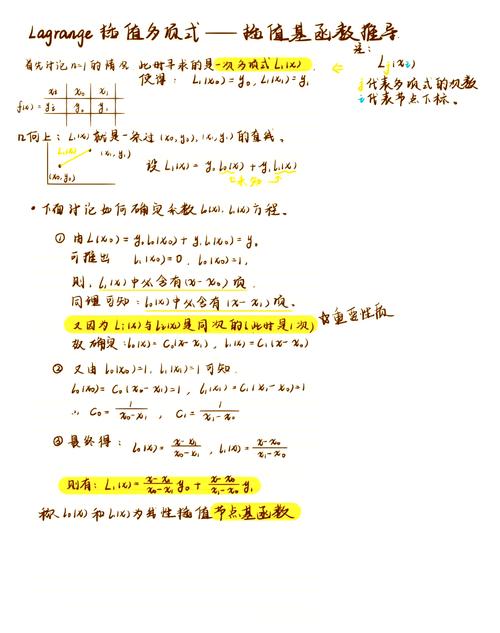 Lagrange 插值多项式 —— 插值基函数推导
首先讨论 n=1 的情况 此时寻求的是一次多项式 L₁(x).
使得: L₁(x₀)=y₀, L₁(x₁)=y₁
注:
Lⱼ(xᵢ)
j代表多项式的次数
i代表节点下标。
xi x₀ x₁
f(xi)=yi y₀ y₁
几何上: L₁(x) 就是一条过 (x₀,y₀), (x₁,y₁) 的直线。
L₁(x)
(x₁,y₁)
(x₀,y₀)
设 L₁(x) = y₀l₀(x) + y₁l₁(x)
未知
· 下面讨论如何确定系数 l₀(x), l₁(x) 方程。
① 由 L₁(x₀) = y₀l₀(x₀) + y₁l₁(x₀) = y₀
可推出 l₁(x₀)=0, l₀(x₀)=1,
则, l₁(x) 中必含有(x-x₀) 项
同理可知: l₀(x) 中必含有 (x-x₁) 项。
又因为 L₁(x)与l₀(x)是同次的(此时是1次) ☆重要性质
故确定: l₀(x) = C₀(x-x₁), l₁(x) = C₁(x-x₀)
② 又由 l₀(x₀)=1, l₁(x₁)=1 可知.
l₀(x₀) = C₀(x₀-x₁)=1, l₁(x₁) = C₁(x₁-x₀)=1
∴ C₀ = 1/(x₀-x₁), C₁ = 1/(x₁-x₀)
③ 最终得: l₀(x) = (x-x₁)/(x₀-x₁), l₁(x) = (x-x₀)/(x₁-x₀)
则有: L₁(x) = (x-x₁)/(x₀-x₁) y₀ + (x-x₀)/(x₁-x₀) y₁
称 l₀(x) 和 l₁(x) 为线性插值节点基函数